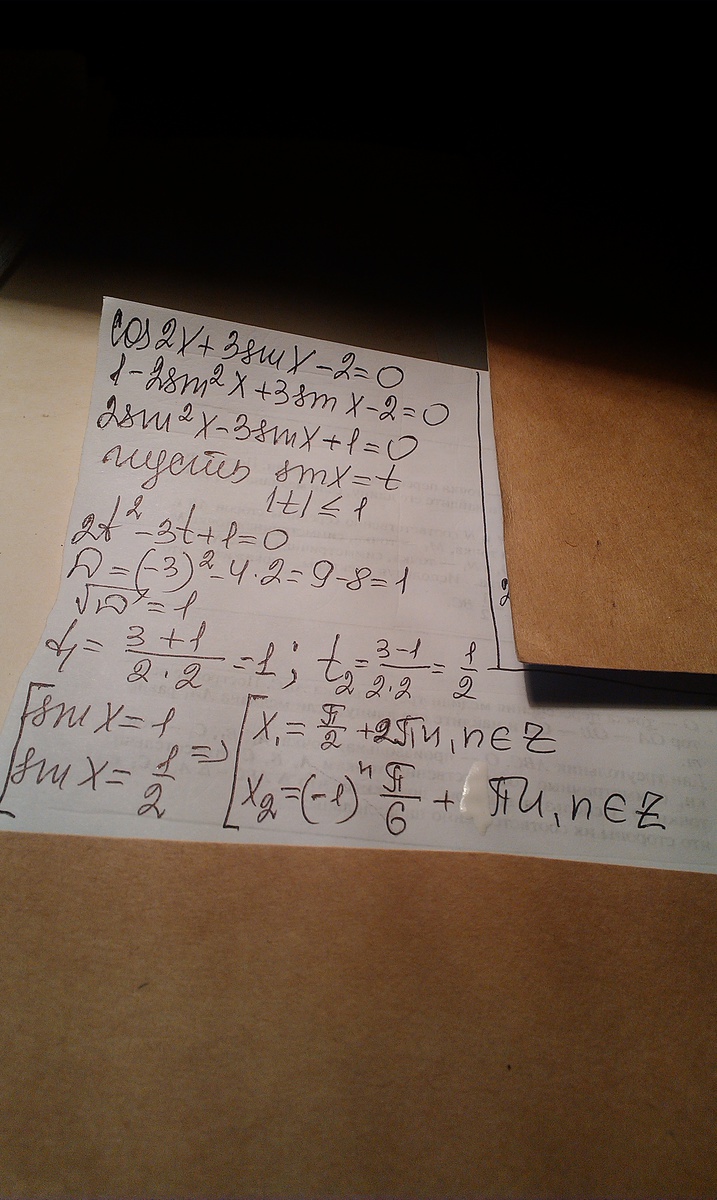 cos2x+3sinx-2=0
1-2sin²x+3sinx-2=0
2sin²x-3sinx+1=0
пусть sinx=t
|t|≤1
2t²-3t+1=0
D=(-3)²-4·2=9-8=1
√D=1
t₁=(3+1)/(2·2)=1; t₂=(3-1)/(2·2)=1/2
[sinx=1 => [x₁=π/2+2πn, n∈Z
[sinx=1/2 [x₂=(-1)ⁿ π/6+ πn, n∈Z